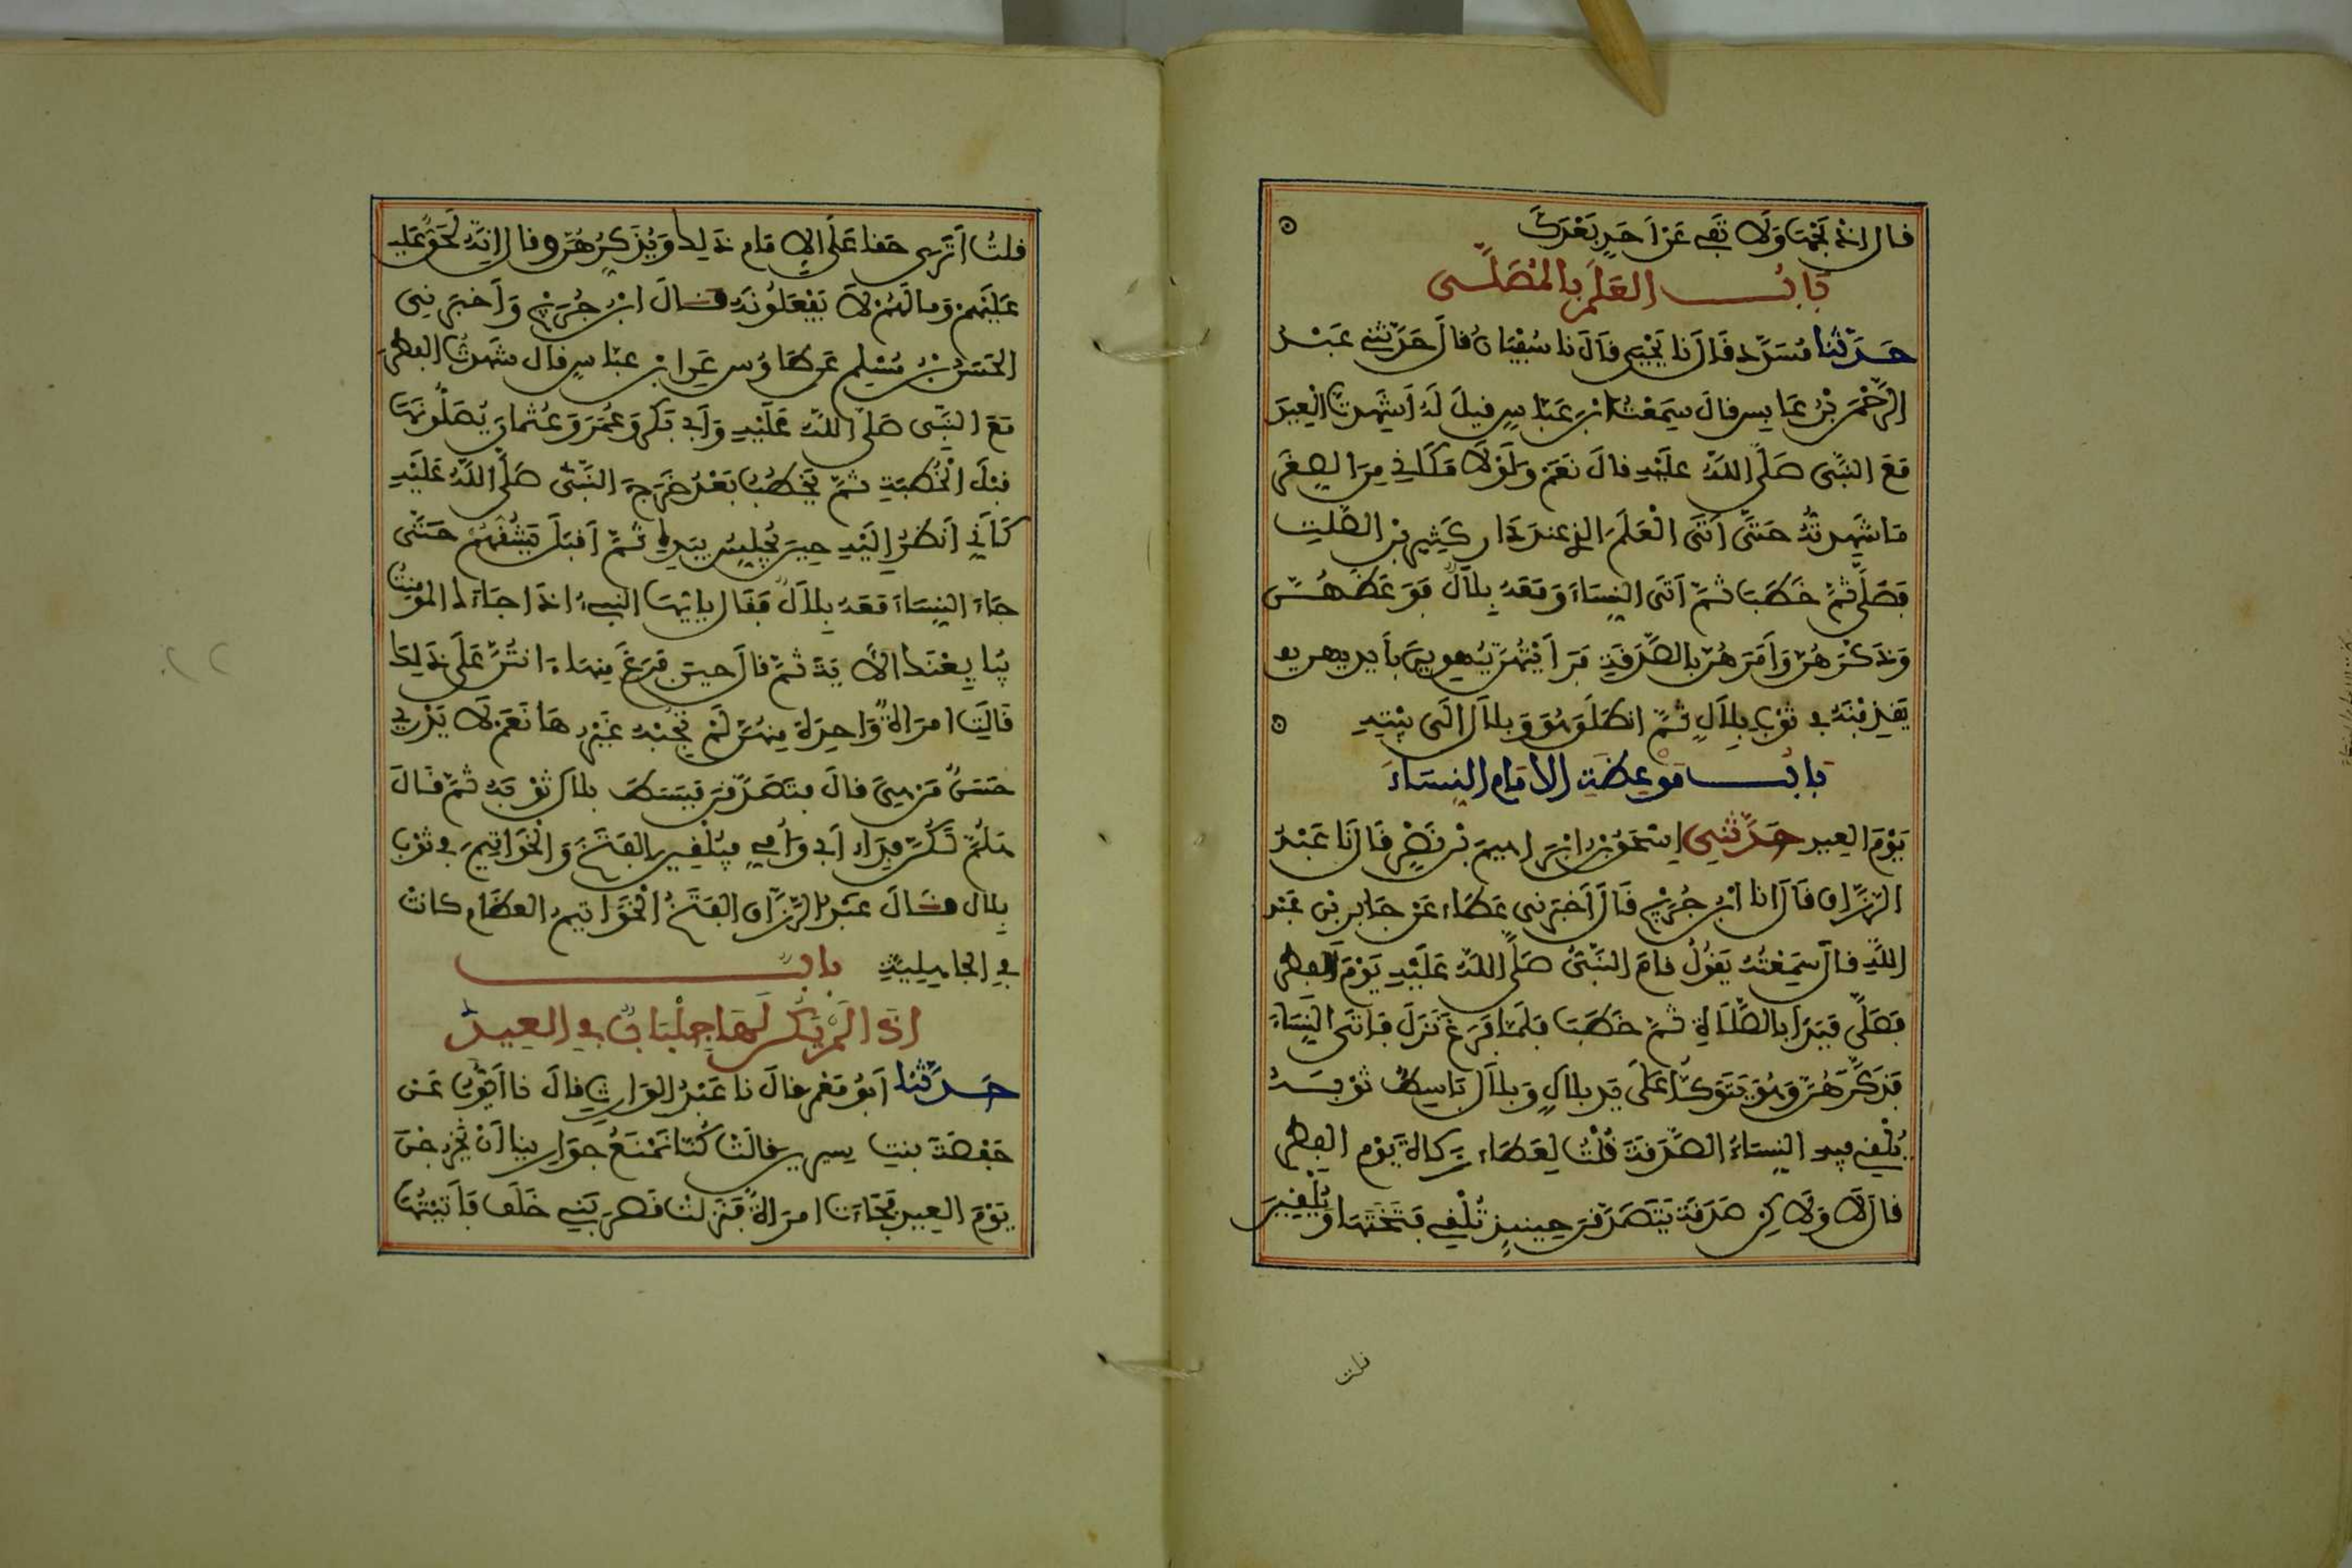 قال اذبحها ولا تفى عن احد بعدك
باب العلم بالمصلى
حدثنا مسدد قال نا يحيى قال نا سفيان قال حدثني عبد
الرحمن بن عابس قال سمعت ابن عباس قيل له أشهدت العيد
مع النبي صلى الله عليه قال نعم ولولا مكاني من الصغر
ما شهدته حتى أتى العلم الذي عند دار كثير بن الصلت
فصلى ثم خطب ثم أتى النساء ومعه بلال فوعظهن
وذكرهن وأمرهن بالصدقة فرأيتهن يهوين بأيديهن
يقذفنه في ثوب بلال ثم انطلق هو وبلال الى بيته
باب موعظة الامام النساء
يوم العيد حدثني إسحق بن ابراهيم بن نصر قال نا عبد
الرزاق قال انا ابن جريج قال أخبرني عطاء عن جابر بن عبد
الله قال سمعته يقول قام النبي صلى الله عليه يوم الفطر
فصلى فبدأ بالصلاة ثم خطب فلما فرغ نزل فأتى النساء
فذكرهن وهو يتوكأ على يد بلال وبلال باسط ثوبه
يلقي فيه النساء الصدقة قلت لعطاء زكاة يوم الفطر
قال لا ولاكن صدقة يتصدقن حينئذ تلقي فتختها ويلقين
قلت
قلت أترى حقا على الإمام ذلك ويذكرهن قال إنه لحق عليه
عليهم ومالهم لا يفعلونه قال ابن جريج وأخبرني
الحسن بن مسلم عن طاوس عن ابن عباس قال شهدت الفطر
مع النبي صلى الله عليه وأبي بكر وعمر وعثمان يصلونها
قبل الخطبة ثم يخطب بعد خرج النبي صلى الله عليه
كأني أنظر إليه حين يجلس بيده ثم أقبل يشقهم حتى
جاء النساء معه بلال فقال يايها النبيء اذا جاءك المومنت
يبايعنك الآية ثم قال حين فرغ منها ءانتن على ذلك
قالت امرأة واحدة منهن لم يجبه غيرها نعم لا يدري
حسن من هي قال فتصدقن فبسط بلال ثوبه ثم قال
هلم لكن فداء أبي وأمي فيلقين الفتخ والخواتيم في ثوب
بلال قال عبد الرزاق الفتخ الخواتيم العظام كانت
في الجاهلية باب
اذا لم يكن لها جلباب في العيد
حدثنا أبو معمر قال نا عبد الوارث قال نا أيوب عن
حفصة بنت سيرين قالت كنا نمنع جوارينا أن يخرجن
يوم العيد فجاءت امرأة فنزلت قصر بني خلف فأتيتها